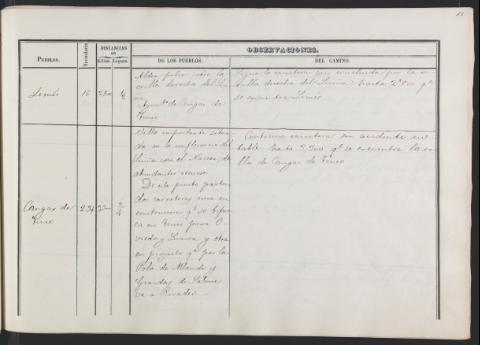 OBSERVACIONES.
PUEBLOS.
DISTANCIAS
EN
Kilóm. Leguas.
DE LOS PUEBLOS.
DEL CAMINO.
Limés
Aldea pobre sobre la
orilla derecha del
Ayunt.º de Cangas de
Tineo
Sigue la carretera por la o
rilla derecha del hasta 2'800 q.e
se encuentra Limés
Cangas de
Tineo
Villa importante situa
da en la confluencia del
con el Narcea, de
abundantes recursos
De este punto parten
dos carreteras una en
construccion q.e se bifur
ca en Tineo para O
viedo y Luarca y otra
en proyecto q.e por la
Pola de Allande y
Grandas de Salime
va a Rivadeo
Continua carretera sin accidente no
table hasta 2,300 q.e se encuentra la vi
lla de Cangas de Tineo